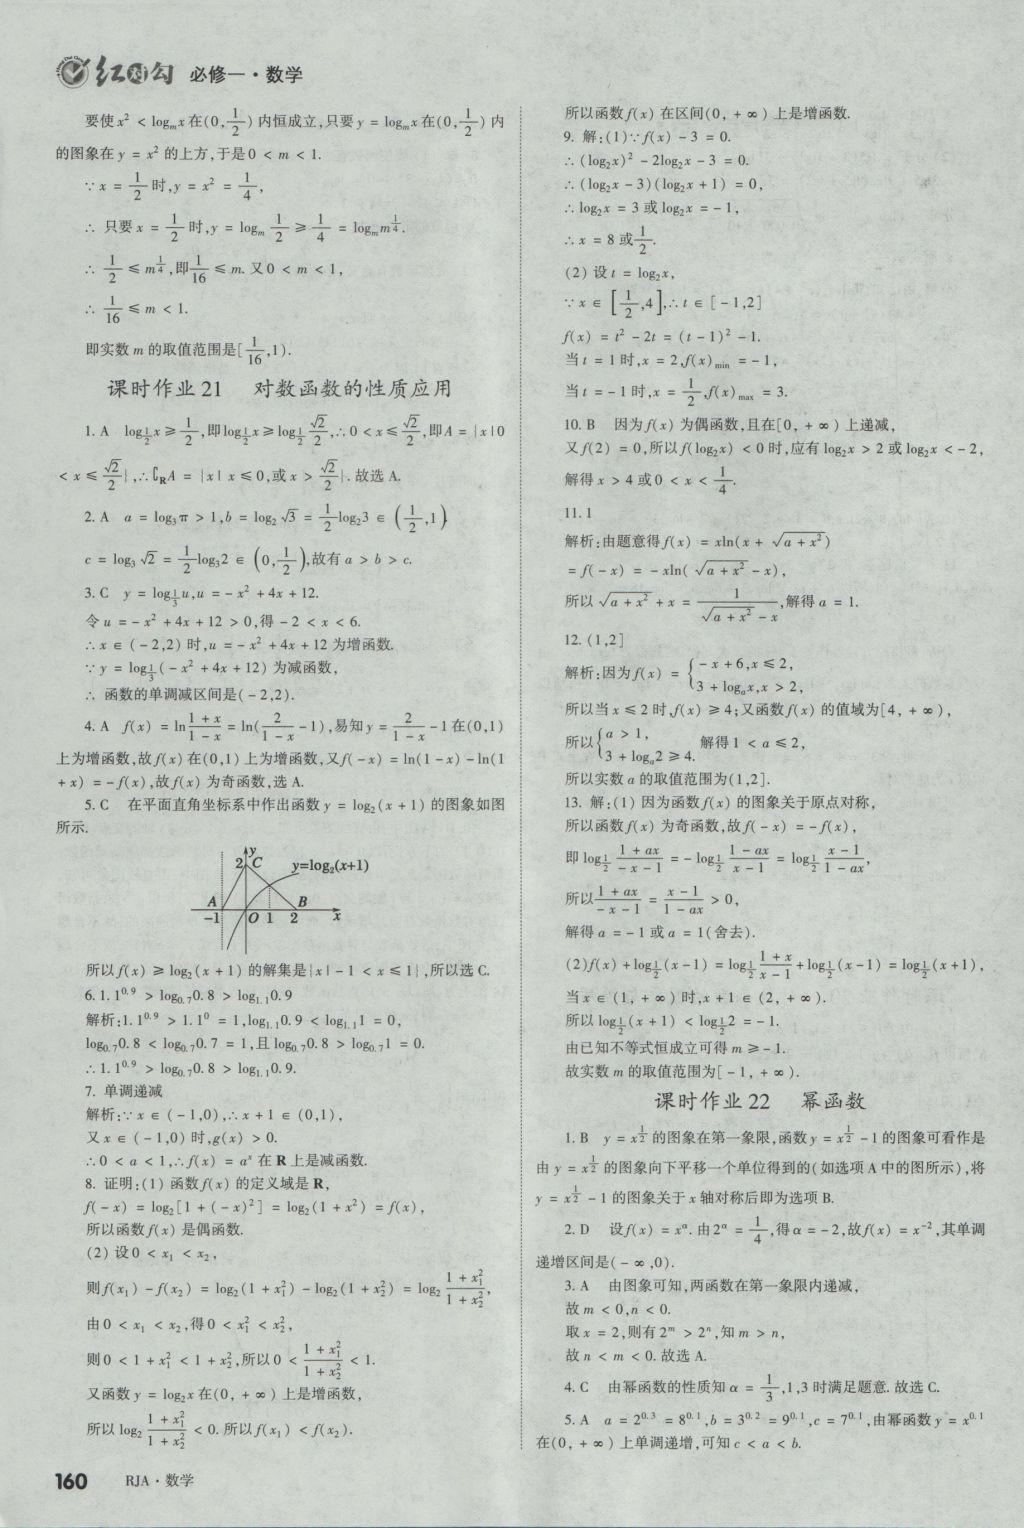 红对勾 必修一·数学
要使x² < logₘx在(0,1/2)内恒成立,只要y = logₘx在(0,1/2)内
的图象在y = x²的上方,于是0 < m < 1.
∵x = 1/2时,y = x² = 1/4,
∴ 只要x = 1/2时,y = logₘ 1/2 ≥ 1/4 = logₘm^(1/4).
∴ 1/2 ≤ m^(1/4),即1/16 ≤ m.又0 < m < 1,
∴ 1/16 ≤ m < 1.
即实数m的取值范围是[1/16,1).
课时作业21 对数函数的性质应用
1. A log_(1/2)x≥1/2,即log_(1/2)x≥log_(1/2)(√2/2),∴0 < x≤√2/2,即A = {x|0
< x ≤ √2/2},∴∁_R A = {x| x ≤0,或x > √2/2}. 故选A.
2. A a = log₃π > 1,b = log₂√3 = 1/2log₂3 ∈ (1/2,1),
c = log₃√2 = 1/2log₃2 ∈ (0,1/2),故有a > b > c.
3. C y = log_(1/3)u,u = - x² + 4x + 12.
令u = - x² + 4x + 12 > 0,得 - 2 < x < 6.
∴x ∈ ( - 2,2)时,u = - x² + 4x + 12为增函数.
∵y = log_(1/3)( - x² + 4x + 12)为减函数,
∴ 函数的单调减区间是( - 2,2).
4. A f(x) = ln (1 + x)/(1 - x) = ln(2/(1 - x) - 1),易知y = 2/(1 - x) - 1在(0,1)
上为增函数,故f(x)在(0,1)上为增函数,又f( - x) = ln(1 - x) - ln(1
+ x) = - f(x),故f(x)为奇函数,选A.
5. C 在平面直角坐标系中作出函数y = log₂(x + 1)的图象如图
所示.
y
2 C y=log₂(x+1)
A B
-1 O 1 2 x
所以f(x)≥log₂(x + 1)的解集是{x| - 1 < x≤1},所以选C.
6. 1.1^0.9 > log_0.7 0.8 > log_1.1 0.9
解析:1.1^0.9 > 1.1⁰ = 1,log_1.1 0.9 < log_1.1 1 = 0,
log_0.7 0.8 < log_0.7 0.7 = 1,且log_0.7 0.8 > log_0.7 1 = 0.
∴1.1^0.9 > log_0.7 0.8 > log_1.1 0.9.
7. 单调递减
解析:∵x ∈ ( - 1,0),∴x + 1 ∈ (0,1),
又x ∈ ( - 1,0)时,g(x) > 0.
∴0 < a < 1,∴f(x) = aˣ在R上是减函数.
8. 证明:(1)函数f(x)的定义域是R,
f( - x) = log₂[1 + ( - x)²] = log₂(1 + x²) = f(x),
所以函数f(x)是偶函数.
(2)设0 < x₁ < x₂,
则f(x₁) - f(x₂) = log₂(1 + x₁²) - log₂(1 + x₂²) = log₂ (1 + x₁²)/(1 + x₂²),
由0 < x₁ < x₂,得0 < x₁² < x₂²,
则0 < 1 + x₁² < 1 + x₂²,所以0 < (1 + x₁²)/(1 + x₂²) < 1.
又函数y = log₂x在(0, + ∞)上是增函数,
所以log₂ (1 + x₁²)/(1 + x₂²) < 0. 所以f(x₁) < f(x₂).
160 RJA·数学
所以函数f(x)在区间(0, + ∞)上是增函数.
9. 解:(1)∵f(x) - 3 = 0.
∴(log₂x)² - 2log₂x - 3 = 0.
∴(log₂x - 3)(log₂x + 1) = 0,
∴log₂x = 3或log₂x = - 1,
∴x = 8或1/2.
(2)设t = log₂x,
∵x ∈ [1/2,4],∴t ∈ [ - 1,2]
f(x) = t² - 2t = (t - 1)² - 1.
当t = 1时,x = 2,f(x)min = - 1,
当t = - 1时,x = 1/2,f(x)max = 3.
10. B 因为f(x)为偶函数,且在[0, + ∞)上递减,
又f(2) = 0,所以f(log₂x) < 0时,应有log₂x > 2或log₂x < - 2,
解得x > 4或0 < x < 1/4.
11. 1
解析:由题意得f(x) = xln(x + √(a + x²))
= f( - x) = - xln(√(a + x²) - x),
所以√(a + x²) + x = 1/(√(a + x²) - x),解得a = 1.
12. (1,2]
解析:因为f(x) = { - x + 6,x ≤ 2,
3 + logₐx,x > 2,
所以当x ≤ 2时,f(x) ≥ 4;又函数f(x)的值域为[4, + ∞),
所以{a > 1,
3 + logₐ2 ≥ 4. 解得1 < a ≤ 2,
所以实数a的取值范围为(1,2].
13. 解:(1)因为函数f(x)的图象关于原点对称,
所以函数f(x)为奇函数,故f( - x) = - f(x),
即log_(1/2) (1 + ax)/( - x - 1) = - log_(1/2) (1 - ax)/(x - 1) = log_(1/2) (x - 1)/(1 - ax),
所以(1 + ax)/( - x - 1) = (x - 1)/(1 - ax) > 0,
解得a = - 1或a = 1(舍去).
(2)f(x) + log_(1/2)(x - 1) = log_(1/2) (1 + x)/(x - 1) + log_(1/2)(x - 1) = log_(1/2)(x + 1),
当x ∈ (1, + ∞)时,x + 1 ∈ (2, + ∞).
所以log_(1/2)(x + 1) < log_(1/2)2 = - 1.
由已知不等式恒成立可得m ≥ - 1.
故实数m的取值范围为[ - 1, + ∞).
课时作业22 幂函数
1. B y = x^(1/2)的图象在第一象限,函数y = x^(1/2) - 1的图象可看作是
由y = x^(1/2)的图象向下平移一个单位得到的(如选项A中的图所示),将
y = x^(1/2) - 1的图象关于x轴对称后即为选项B.
2. D 设f(x) = x^α. 由2^α = 1/4,得α = - 2,故f(x) = x⁻²,其单调
递增区间是( - ∞,0).
3. A 由图象可知,两函数在第一象限内递减,
故m < 0,n < 0.
取x = 2,则有2ᵐ > 2ⁿ,知m > n,
故n < m < 0. 故选A.
4. C 由幂函数的性质知α = 1/3,1,3时满足题意. 故选C.
5. A a = 2^0.3 = 8^0.1,b = 3^0.2 = 9^0.1,c = 7^0.1,由幂函数y = x^0.1
在(0, + ∞)上单调递增,可知c < a < b.